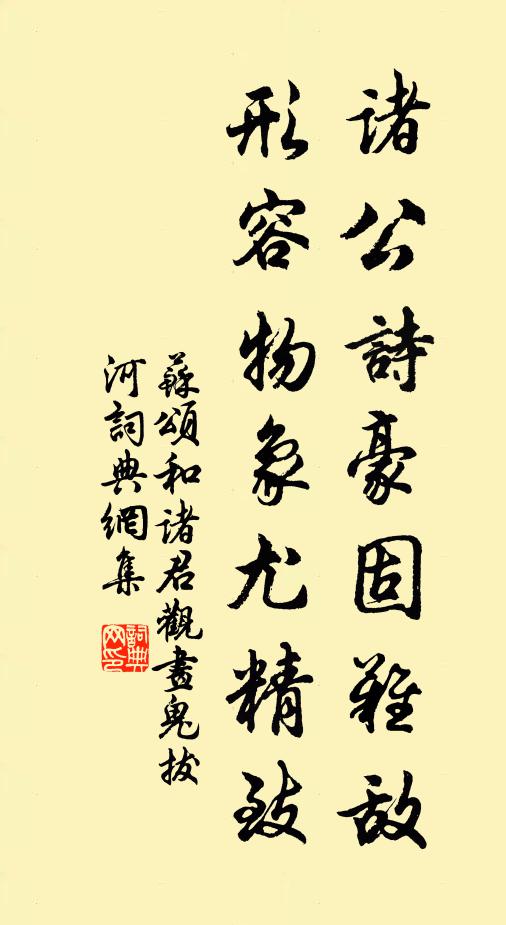 諸公詩豪固難敌
形容物象尤精致
蘇頌和诸君觀畫鬼拔
河詞典網集
詞典
网印